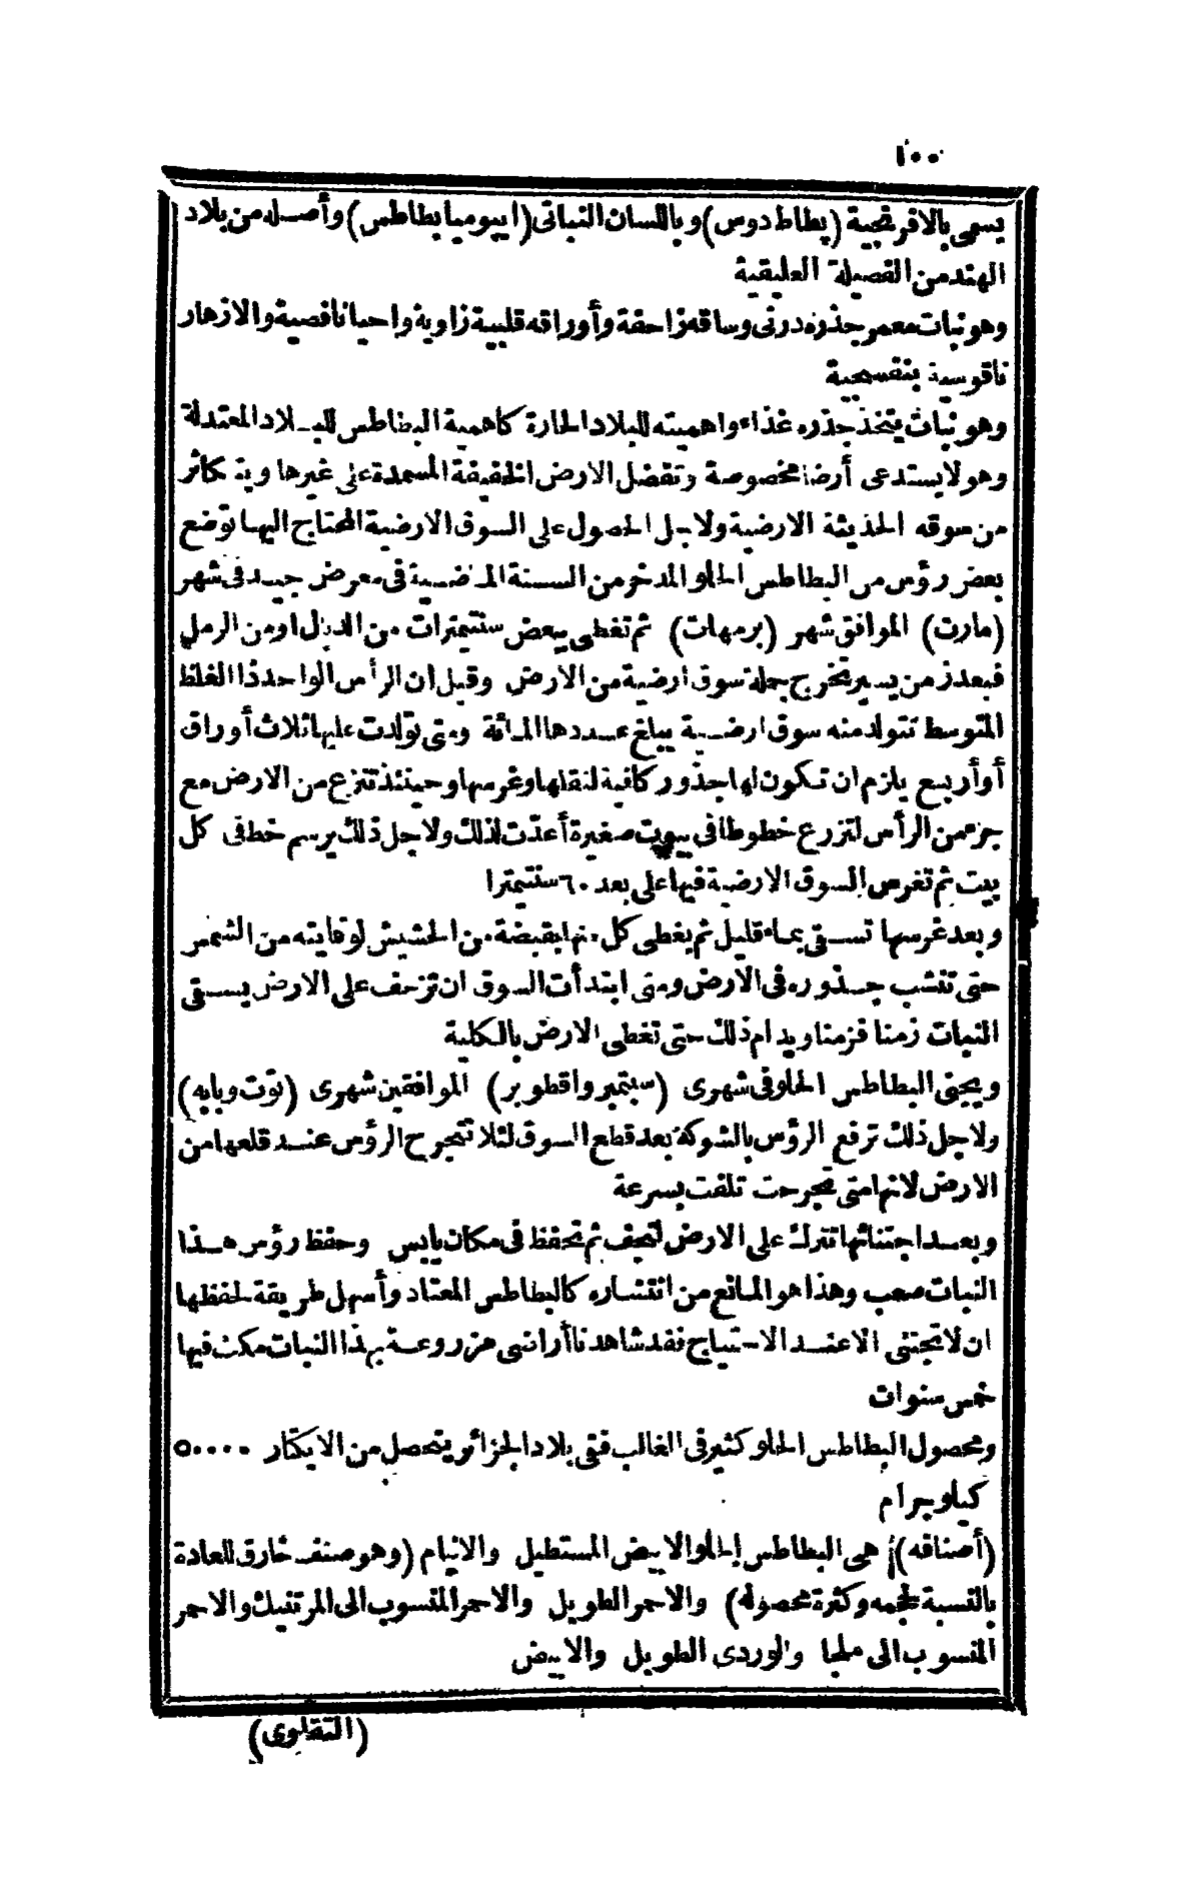 ١٠٠
يسمى بالافرنجية (پطاط دوس) و باللسان النباتى (ايپوميا بطاطس) وأصله من بلاد
الهند من الفصيلة العليقية
وهو نبات معمر جذره درنى وساقه زاحفة وأوراقه قلبية زاوية واحيانا فصية والازهار
ناقوسية بنفسجية
وهو نبات يتخذ جذره غذاء واهميته للبلاد الحارة كاهمية البطاطس للبلاد المعتدلة
وهو لا يستدعى أرضا مخصوصة وتفضل الارض الخفيفة المسمدة على غيرها ويتكاثر
من سوقه الحديثة الارضية ولاجل الحصول على السوق الارضية المحتاج اليها توضع
بعض رؤس من البطاطس الحلو المدخر من السنة الماضية فى معرض جيد فى شهر
(مارت) الموافق شهر (برمهات) ثم تغطى ببعض سنتيمترات من الدبال او من الرمل
فبعد زمن يسير تخرج جملة سوق ارضية من الارض وقيل ان الرأس الواحد ذا الغلظ
المتوسط تتولد منه سوق ارضية يبلغ عددها المائة ومتى تولدت عليها ثلاث أوراق
أو أربع يلزم ان تكون لها جذور كافية لنقلها وغرسها وحينئذ تنزع من الارض مع
جزء من الرأس لتزرع خطوطا فى بيوت صغيرة أعدت لذلك ولاجل ذلك يرسم خط فى كل
بيت ثم تغرس السوق الارضية فيها على بعد ٦٠ سنتيمترا
وبعد غرسها تسقى بماء قليل ثم يغطى كل منها بقبضة من الحشيش لوقايته من الشمس
حتى تنشب جذوره فى الارض ومتى ابتدأت السوق ان تزحف على الارض يسقى
النبات زمنا فزمنا ويدام ذلك حتى تغطى الارض بالكلية
ويجنى البطاطس الحلو فى شهرى (سبتمبر واقطوبر) الموافقين شهرى (توت وبابه)
ولاجل ذلك ترفع الرؤس بالشوكة بعد قطع السوق لئلا تتجرح الرؤس عند قلعها من
الارض لانها متى تجرحت تلفت بسرعة
وبعد اجتنائها تترك على الارض لتجف ثم تحفظ فى مكان يابس وحفظ رؤس هذا
النبات صعب وهذا هو المانع من انتشاره كالبطاطس المعتاد وأسهل طريقة لحفظها
ان لا تجتنى الا عند الاحتياج فقد شاهدنا أراضى مزروعة بهذا النبات مكث فيها
خمس سنوات
ومحصول البطاطس الحلو كثير فى الغالب ففى بلاد الجزائر يتحصل من الايكتار ٥٠٠٠٠
كيلوجرام
(أصنافه) هى البطاطس الحلو الابيض المستطيل والانيام (وهو صنف خارق للعادة
بالنسبة لحجمه وكثرة محصوله) والاحمر الطويل والاحمر المنسوب الى المرتنيك والاحمر
المنسوب الى ملجا والوردى الطويل والابيض
(التقلوى)